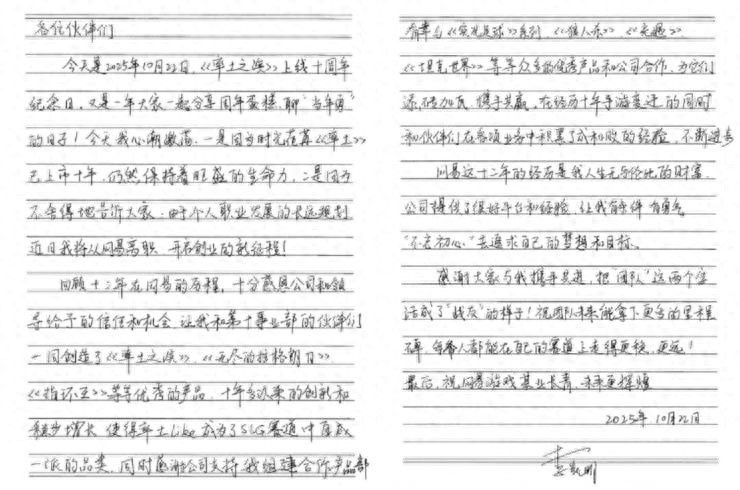 各位伙伴们
今天是2025年10月22日,《率土之滨》上线十周年
纪念日,又是一年大家一起分享周年蛋糕,聊"当年勇"
的日子!今天我心潮激荡,一是因为时光荏苒《率土》
已上市十年,仍然保持着旺盛的生命力,二是因为
不舍得地告诉大家,由于个人职业发展的长远规划
近日我将从网易离职,开启创业的新征程!
回顾十二年在网易的历程,十分感恩公司和领
导给予的信任和机会,让我和第十事业部的伙伴们
一同创造了《率土之滨》、《无尽的拉格朗日》、
《指环王》等等优秀的产品,十年多以来的创新和
稳步增长,使得率土Like成为了SLG赛道中自成
一派的品类,同时感谢公司支持我组建合作产品部
有幸与《实况足球》系列、《猎人杀》、《光遇》、
《坦克世界》等等众多的优秀产品和公司合作,为它们
添砖加瓦,携手共赢。在经历十年手游变迁的同时
和伙伴们在各项业务中积累了成和败的经验,不断进步
网易这十二年的经历是我人生无与伦比的财富,
公司提供了很好平台和经验,让我有条件有勇气
"不忘初心"去追求自己的梦想和目标。
感谢大家与我携手共进,把"团队"这两个字
活成了"战友"的样子!祝团队未来能拿下更多的里程
碑,每个人都能在自己的赛道上走得更稳,更远!
最后,祝网易游戏基业长青,未来更辉煌
2025年10月22日
李凯明